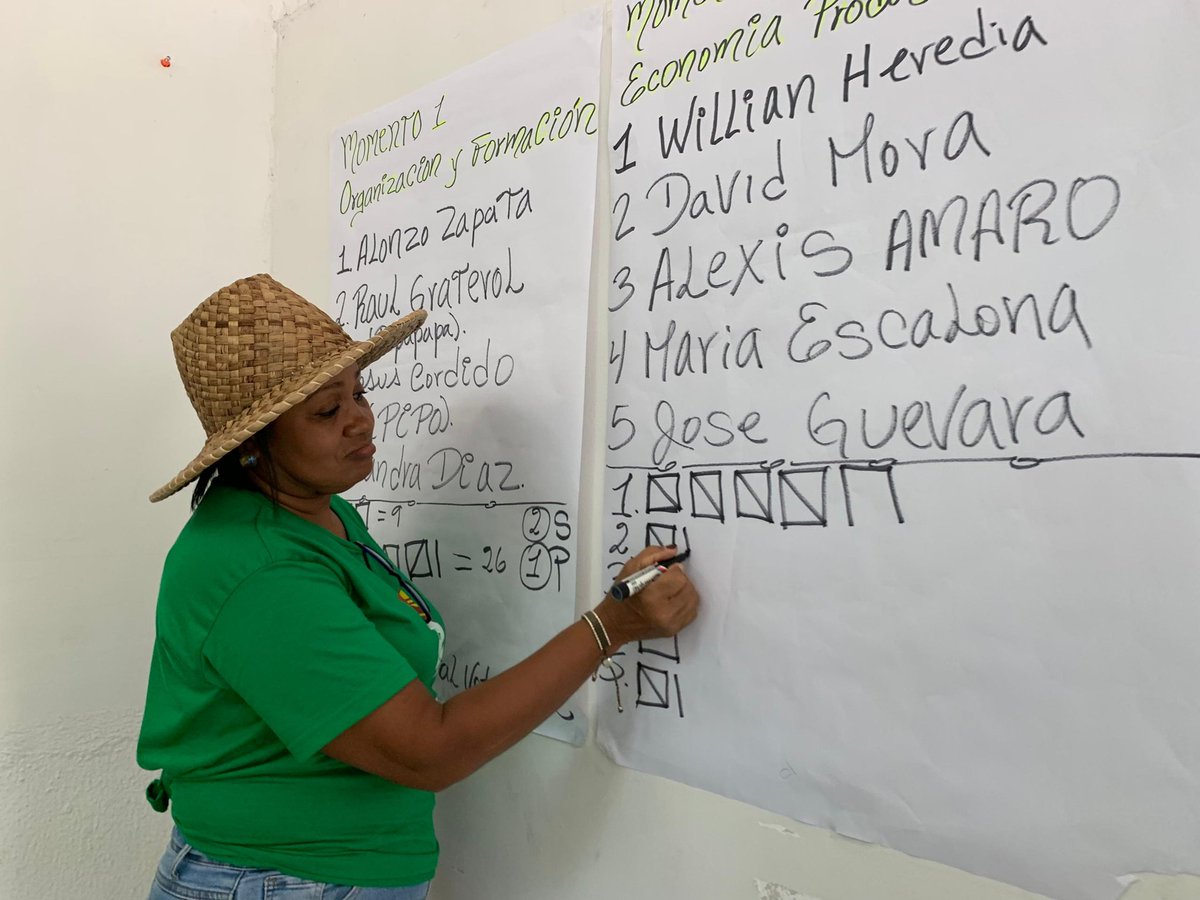 Momento 1
Organizacion y Formación
1 Alonzo Zapata
2 Raul Graterol
Cordido
(PIPO).
Diaz.
= 9
= 26
2 S
1 P
Economia
1 Willian Heredia
2 David Mora
3 Alexis AMARO
4 Maria Escalona
5 Jose Guevara
1.
2.